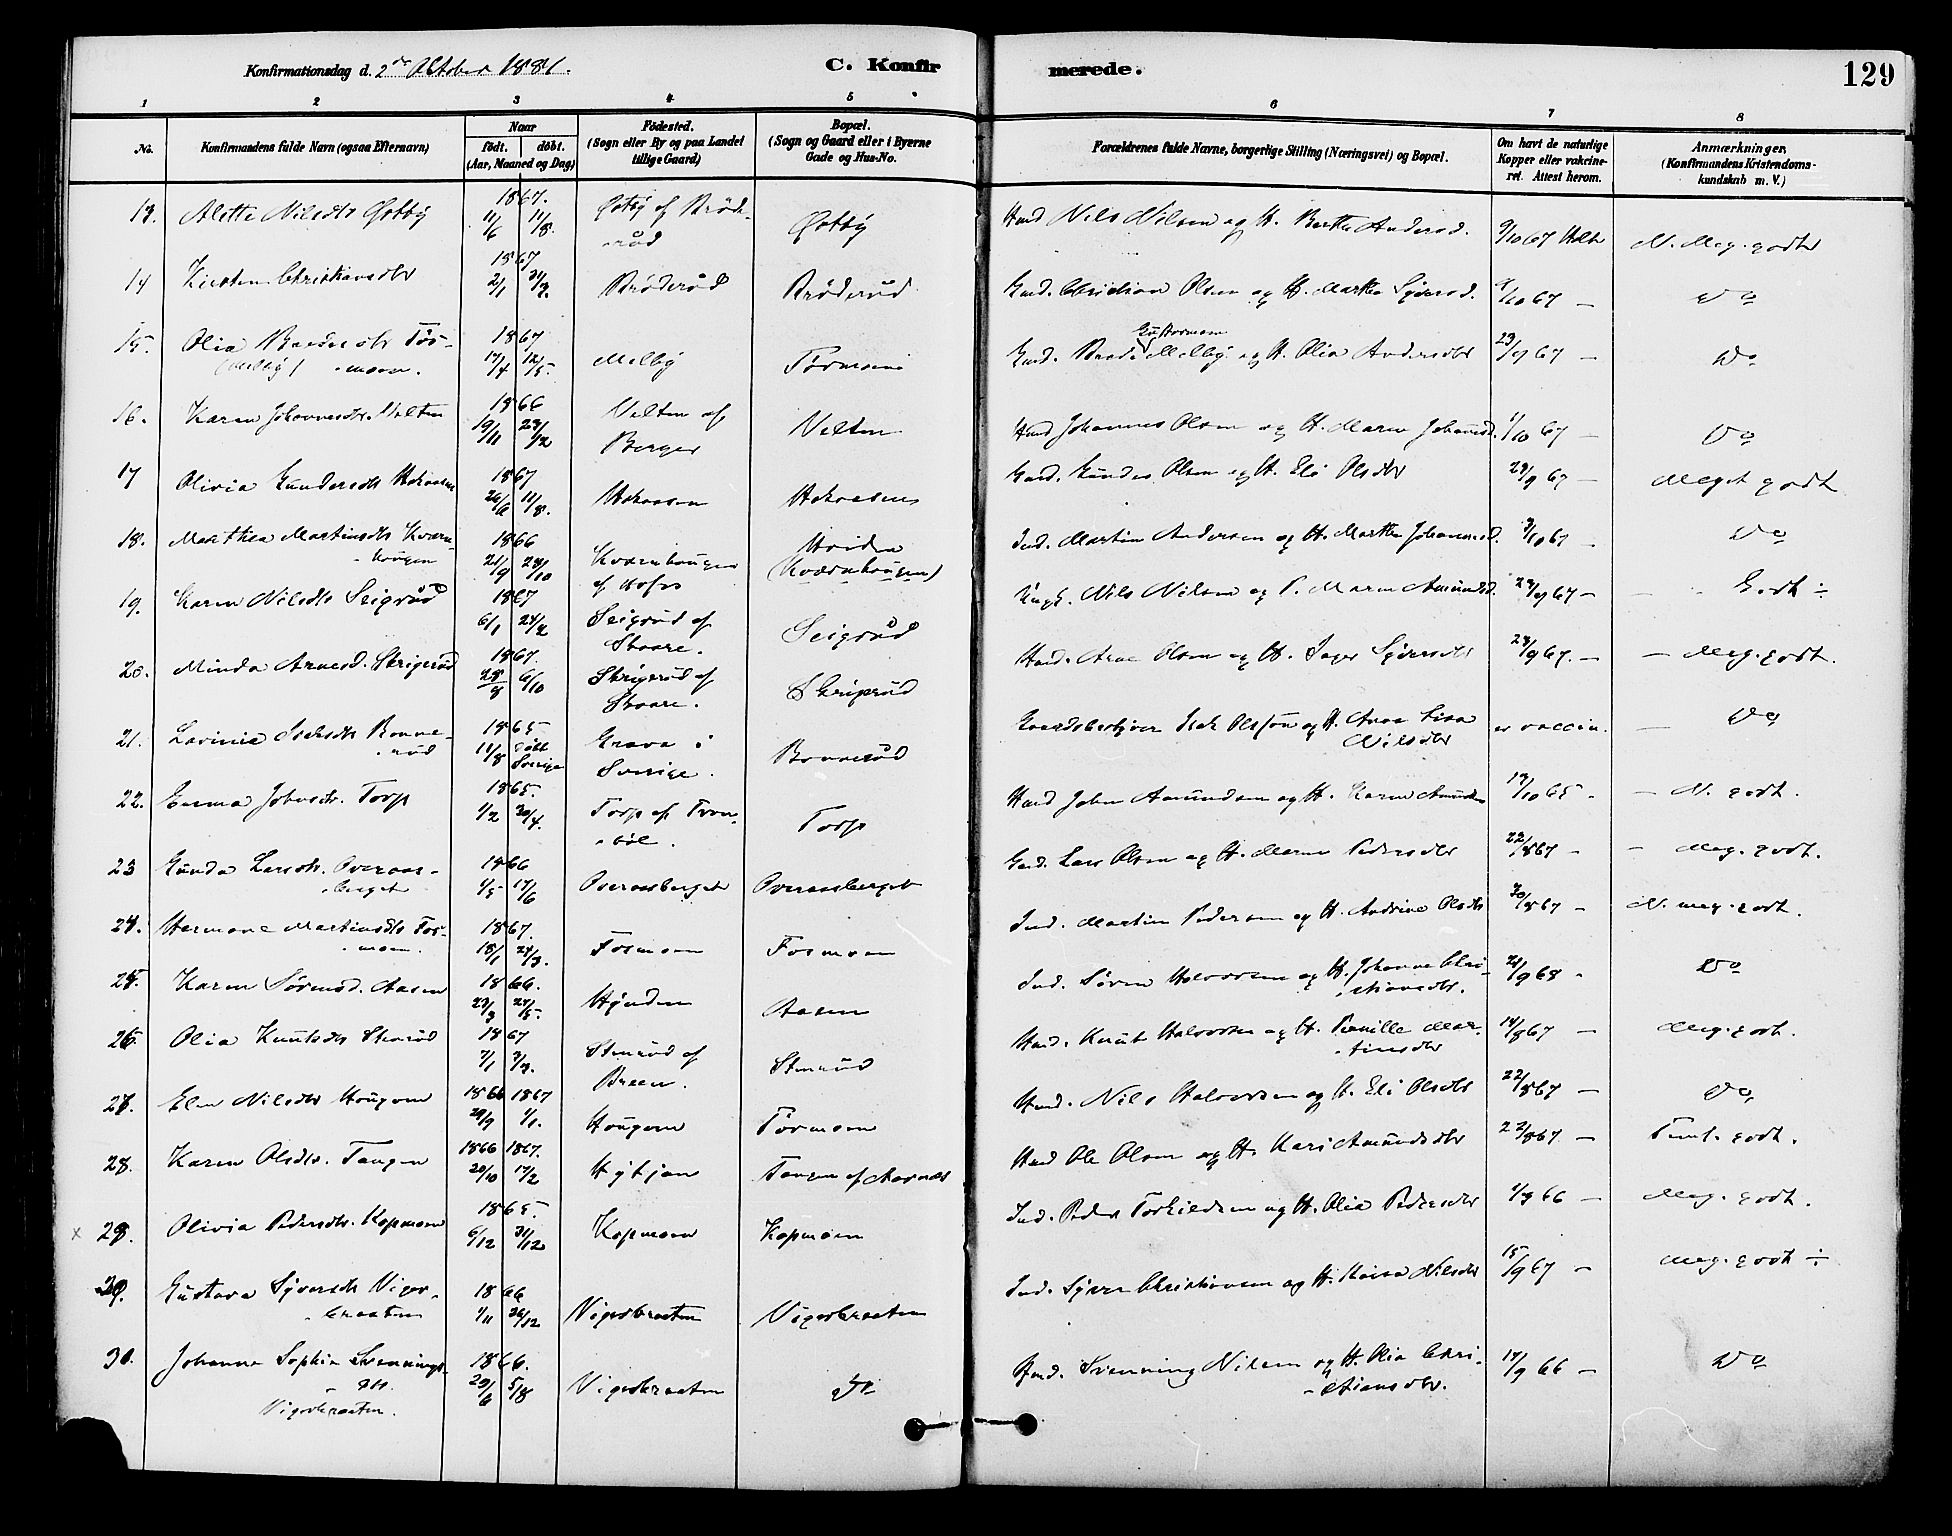 Konfirmationsdag d. 2de Oktober 1881.
C. Konfirmerede.
129
1 2 3 4 5 6 7 8
No.
Konfirmandens fulde Navn (ogsaa Efternavn)
Naar
født. døbt.
(Aar, Maaned og Dag)
Fødested.
(Sogn eller By og paa Landet
tillige Gaard)
Bopæl.
(Sogn og Gaard eller i Byerne
Gade og Hus-No.
Forældrenes fulde Navne, borgerlige Stilling (Næringsvei) og Bopæl.
Om havt de naturlige
Kopper eller vakcine-
ret. Attest herom.
Anmærkninger.
(Konfirmandens Kristendoms-
kundskab m. V.)
13. Alette Nilsdtr Østby 1867. 11/6 11/8. Østby af Brøde-
rud Østby Husmd Nils Nilsen og H. Berthe Andersd. 9/10 67 N. Meg. godt
14 Kirsten Christiansdtr 1867 2/1 31/3. Brøderud Brøderud Gmd. Christian Olsen og H. Marthe Syversd. 9/10 67 — Do
15. Olia Bredesdtr Tos-
(Melby) moen. 1867 17/4 12/5. Melby Tosmoen Gmd. Brede Melby og H. Olia Andersdtr 23/9 67 — Do
16. Karen Johannesdtr. Velten 1866 19/11 23/12 Velten af
Berger Velten Husmd Johannes Olsen og H. Maren Johannesd. 1/10 67 — Do
17 Olivia Gundersdtr Hokaasen 1867 26/6 11/8. Hokaasen Hokaasen Gmd. Gunder Olsen og H. Eli Olsdtr 29/9 67 — Meget godt
18. Marthea Martinsdtr Kværn-
hougen 1866 21/9 28/10 Kværnhougen
af Hofos Hvidra
(Kværnhougen) Ind. Martin Andersen og H. Marthe Johannesd. 3/10 67 — Do
19. Karen Nilsdtr Seigrud 1867 6/1 24/2 Seigrud af
Skaare. Seigrud Ungk. Nils Nilsen og P. Maren Amundsd. 29/9 67 — Godt ÷
20. Minda Arnesd. Skrigerud 1867. 28/8 6/10 Skrigerud af
Skaare. Skrigerud Husmd. Arne Olsen og H. Inger Syversdtr 28/9 67. — Meg. godt.
21. Lavinia Isaksdtr Bonne-
rud 1865 11/8 døbt
Sverige Grava i
Sverige. Bonnerud Gaardsbestyrer Isak Olsson og H. Anna Lisa
Nilsdtr er vaccin. — Do
22. Emma Johnsdtr. Torp 1865. 1/2 30/4. Torp af Tron-
bøl. Torp Husmd John Amundsen og H. Karen Amundsdtr 19/10 65 - — N. godt.
23 Gunda Larsdtr. Overaas-
berget 1866 1/5 17/6 Overaasberget Overaasberget Gmd. Lars Olsen og H. Maren Pedersdtr 22/8 67 - — Meg. godt.
24. Hermana Martinsdtr Tos-
moen. 1867. 18/1 24/3. Tosmoen Tosmoen Ind. Martin Pedersen og H. Andrine Olsdtr 30/8 67 - N. meg. godt.
25. Karen Sørensd. Aasen 1866. 29/3 27/5. Hynden Aasen Ind. Søren Halvorsen og H. Johanne Chri-
stiansdtr. 21/9 68 - Do
26. Olia Knutsdtr Stenrud 1867 7/1 3/3. Stenrud af
Breen. Stenrud Husmd. Knut Halvorsen og H. Pernille Mar-
tinsdtr 14/8 67 — Meg. godt.
27. Elen Nilsdtr Hougen 1866 1867 29/9 1/1. Hougen Tosmoen Husmd. Nils Halvorsen og H. Eli Olsdtr 22/8 67 — Do,
28. Karen Olsdtr. Tangen 1866 1867. 20/10 17/2 Tangen af Aarnæs Husmd Ole Olsen og H. Kari Amundsdtr 22/8 67 — Teml. godt.
x 29. Olivia Pedersdtr. Kopmoen 1865. 6/12 31/12 Kopmoen Kopmoen Ind. Peder Torkildsen og H. Olia Pedersdtr 66 — Meg. godt.
Gustava Syversdtr Viger-
braaten 1866 1/11 26/12 Vigerbraaten Vigerbraaten Ind. Syver Christiansen og H. Kaisa Nilsdtr 15/9 67 — Meg. godt ÷
30. Johanne Sophie Svennings-
dtr.
Vigerbraaten. 1866. 29/6 5/8 Vigerbraaten Do Gmd. Svenning Nilsen og H. Olia Chri-
stiansdtr. 18/9 66 — Do